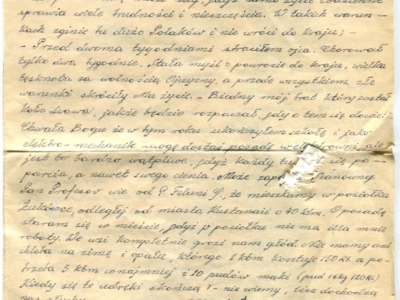 sprawia wiele trudności i nieszczęścia. W takich warun-
kach zginie tu dużo Polaków i nie wróci do kraju; -
- Przed dwoma tygodniami straciłem ojca. Chorował
tylko dwa tygodnie. Stała myśl o powrocie do kraju, wielka
tęsknota za wolnością Ojczyzny, a przede wszystkiem złe
warunki skróciły Mu życie. - Biedny mój brat który został
koło Lwowa, jakże będzie rozpaczał, gdy o tem się dowie!
Chwała Bogu że w tym roku ukończyłem szkołę i jako
elektro-mechanik mogę dostać posadę ale
jest to bardzo wątpliwe, gdyż każdy się po-
parcia, a nawet swego cienia. Może Szanowny
Pan Profesor wie od P. Feluni G. że mieszkamy w posiołku
Żukówce, odległej od miasta Kustanais o 40 klm. O posadę
staram się w mieście, gdyż w posiołku nie ma dla mnie
roboty. We wsi kompletnie grozi nam głód. Nie mamy ani
na zimę i opału, którego 1 kbm kosztuje 150 rb. a po-
trzeba 5 kbm co najmniej i 10 pudów mąki (pud 16kg 120 rb.)
Kiedy się te udręki skończą? - nie wiemy,